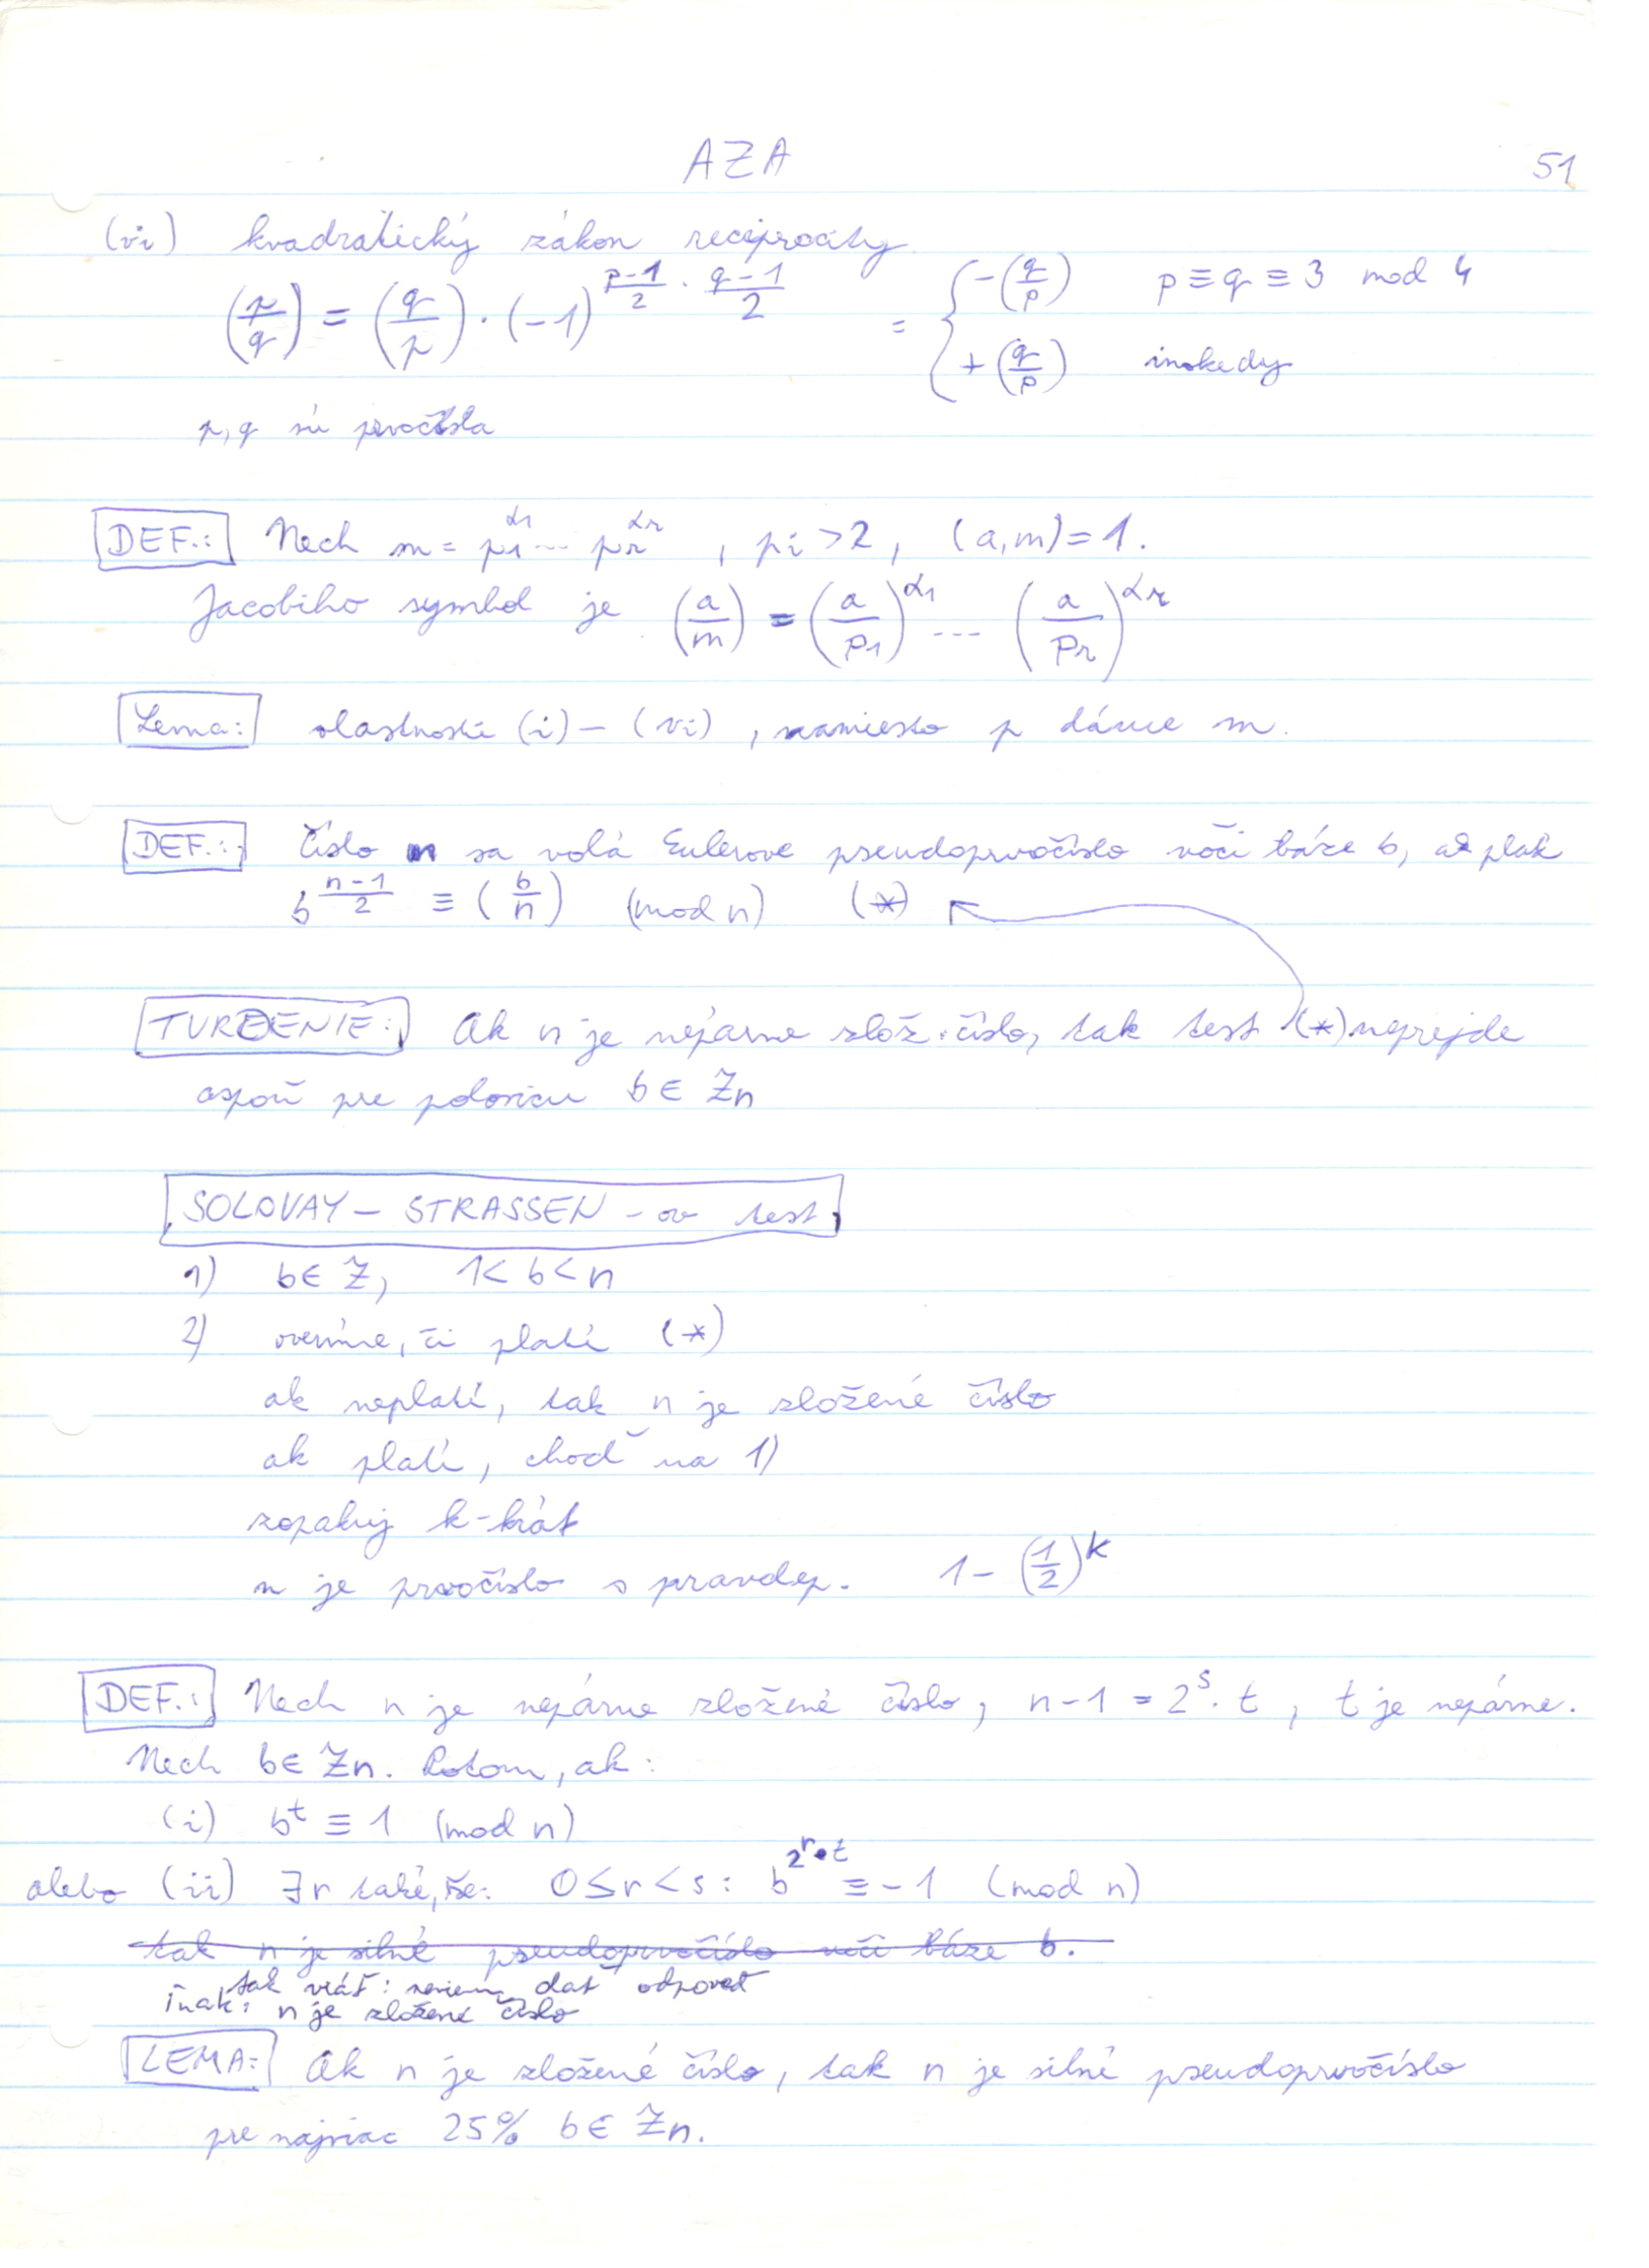 AZA 51
(vi) kvadratický zákon reciprocity
(p/q) = (q/p) · (-1)^{(p-1)/2 · (q-1)/2} = { -(q/p) p ≡ q ≡ 3 mod 4
+(q/p) inokedy
p, q sú prvočísla
DEF.: Nech m = p₁^{α₁} ... pᵣ^{αᵣ}, pᵢ > 2, (a,m) = 1.
Jacobiho symbol je (a/m) = (a/p₁)^{α₁} ... (a/pᵣ)^{αᵣ}
Lema: vlastnosti (i) – (vi), namiesto p dáme m.
DEF.: Číslo n sa volá Eulerove pseudoprvočíslo voči báze b, ak plak
b^{(n-1)/2} ≡ (b/n) (mod n) (*)
TVRDENIE: Ak n je nepárne zlož. číslo, tak test (*) neprejde
aspoň pre polovicu b ∈ Zn
SOLOVAY – STRASSEN – ov test
1) b ∈ Z, 1 < b < n
2) overíme, či platí (*)
ak neplatí, tak n je zložené číslo
ak platí, choď na 1)
zopakuj k-krát
n je prvočíslo s pravdep. 1 - (1/2)^k
DEF.: Nech n je nepárne zložené číslo, n-1 = 2^s · t, t je nepárne.
Nech b ∈ Zn. Potom, ak:
(i) b^t ≡ 1 (mod n)
alebo (ii) ∃r také, že: 0 ≤ r < s: b^{2^r·t} ≡ -1 (mod n)
tak n je silné pseudoprvočíslo voči báze b.
tak vráť: neviem dať odpoveď
inak: n je zložené číslo
LEMA: Ak n je zložené číslo, tak n je silné pseudoprvočíslo
pre najviac 25% b ∈ Zn.